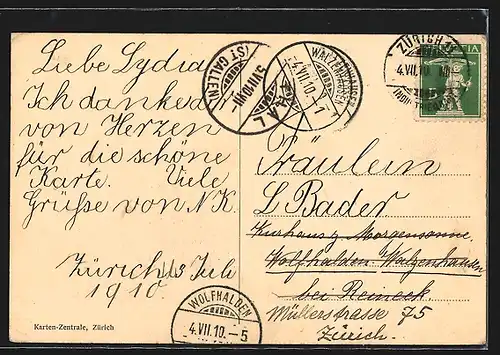 Liebe Lydia
Ich danke
von Herzen
für die schöne
Karte. Viele
Grüsse von N.K.
Zürich, 3 Juli
1910.
Karten-Zentrale, Zürich
ST. GALLEN
WALZENHAUSEN
4.VII.10.
ZÜRICH
4.VII.10
Fräulein
L Bader
Kurhaus z. Morgensonne
Wolfhalden-Walzenhausen
bei Reineck.
Müllerstrasse 75
Zürich.
WOLFHALDEN
4.VII.10.-5